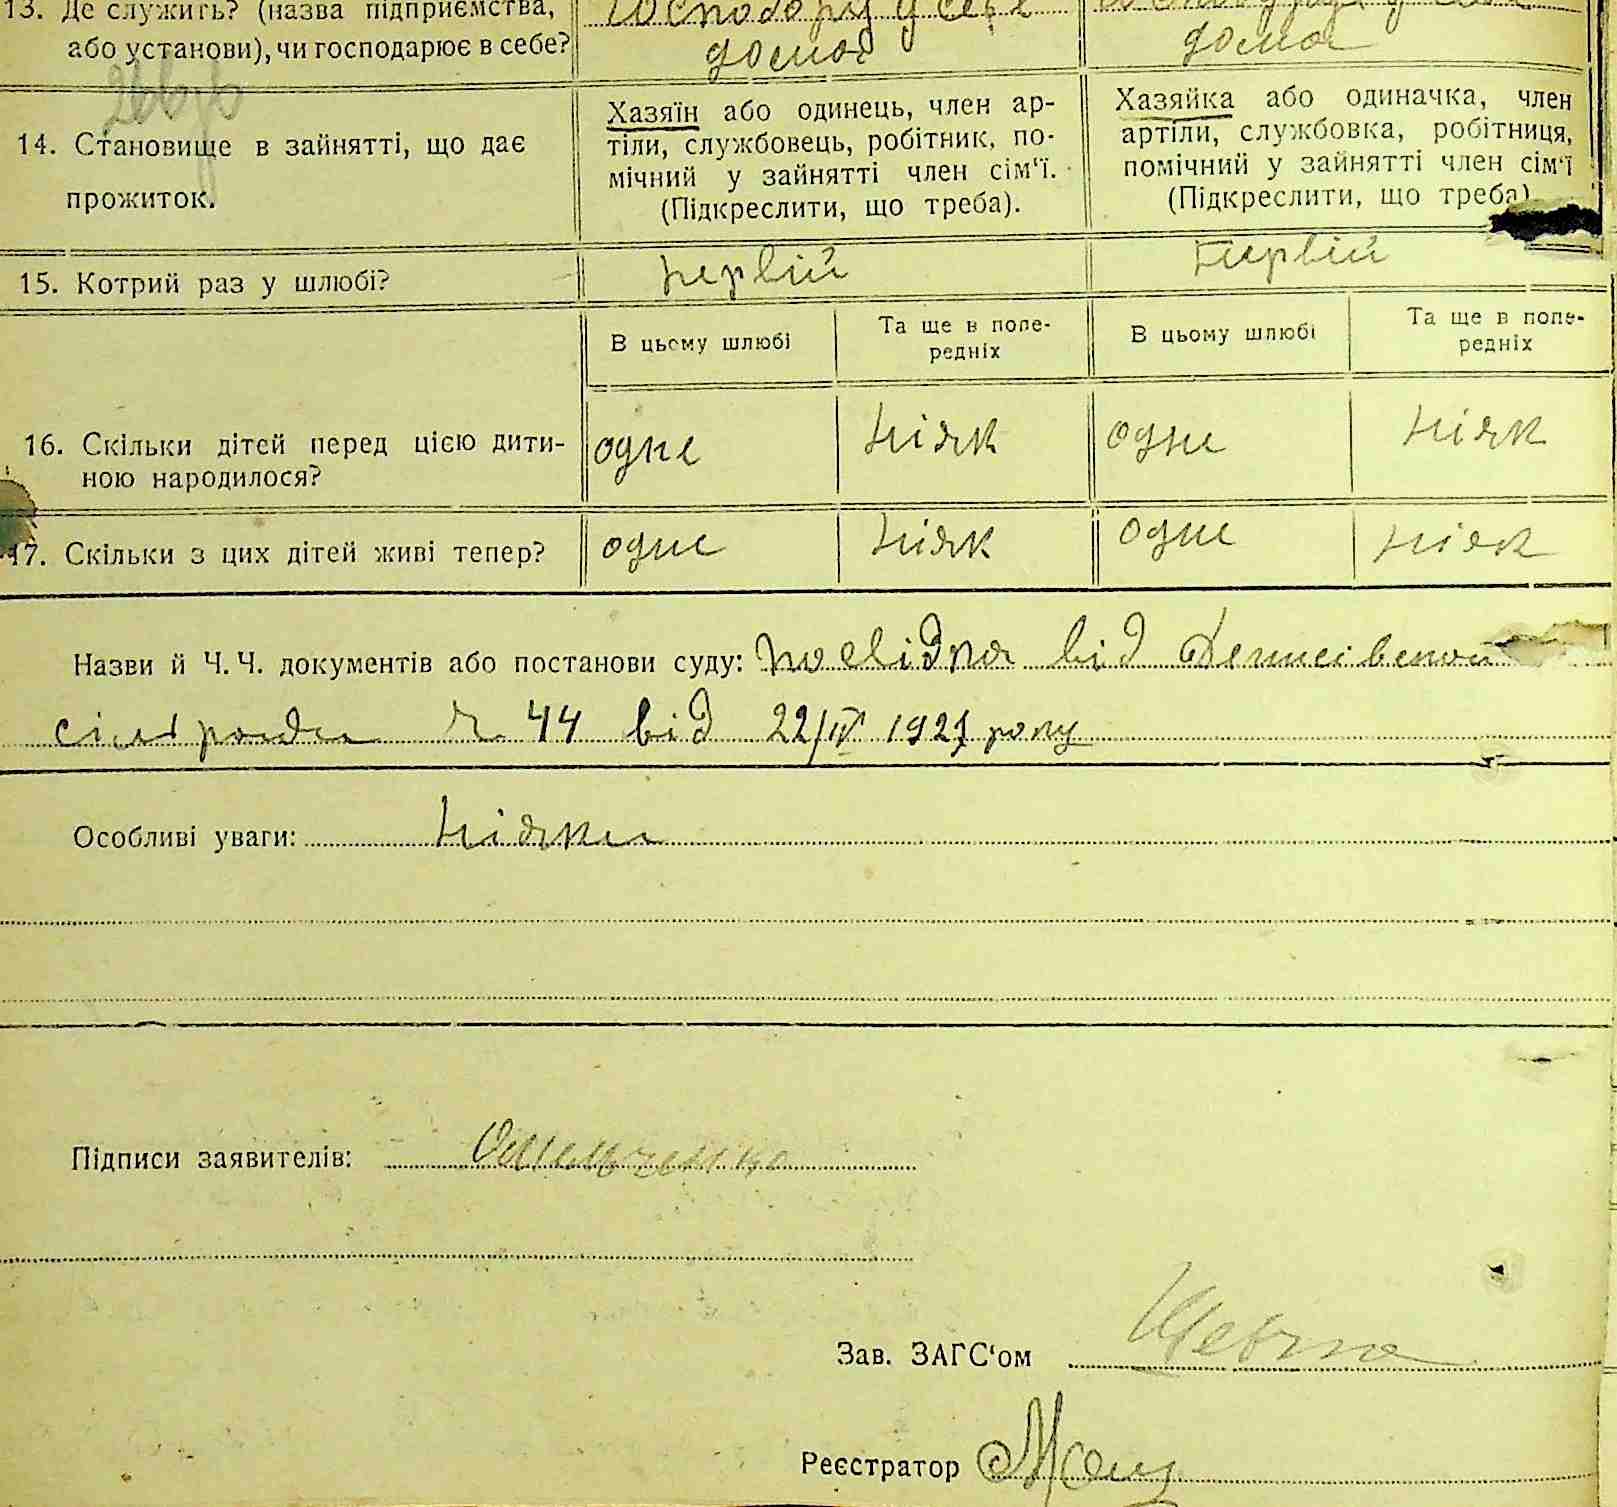 13. Де служить? (назва підприємства, або установи), чи господарює в себе?
Господарю у себе дома
дома
14. Становище в зайнятті, що дає прожиток.
Хазяїн або одинець, член ар-
тіли, службовець, робітник, по-
мічний у зайнятті член сім‘ї.
(Підкреслити, що треба).
Хазяйка або одиначка, член
артіли, службовка, робітниця,
помічний у зайнятті член сім‘ї
(Підкреслити, що треба)
15. Котрий раз у шлюбі?
первій
первій
В цьому шлюбі
Та ще в попе-
редніх
В цьому шлюбі
Та ще в попе-
редніх
16. Скільки дітей перед цією дити-
ною народилося?
одне
ніяк
одне
ніяк
17. Скільки з цих дітей живі тепер?
одне
ніяк
одне
ніяк
Назви й Ч. Ч. документів або постанови суду: посвідка від
сільради ч. 44 від 22/IV 1927 року
Особливі уваги: ніяких
Підписи заявителів: Омельченко
Зав. ЗАГС‘ом
Реєстратор